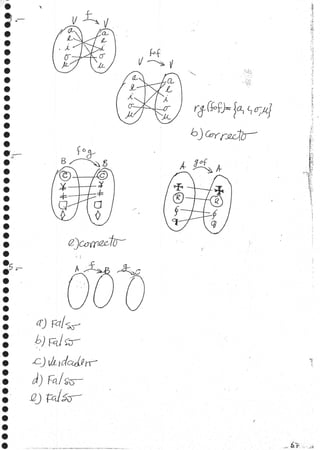 f
V V
a a
e e
i i
o o
u u
fof
V V
a a
e e
i i
o o
u u
rg(fof)={a, i, o, u}
b) correcto
fog
B B
gof
A A
e) correcto
A f B g C
a) Falso
b) Falso
c) Verdadero
d) Falso
e) Falso
67